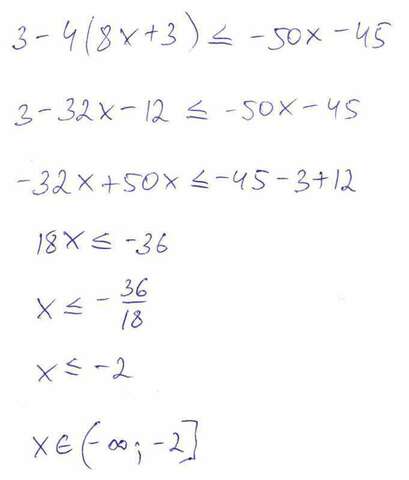 3 - 4(8x+3) ≤ -50x - 45
3 - 32x - 12 ≤ -50x - 45
-32x + 50x ≤ -45 - 3 + 12
18x ≤ -36
x ≤ - 36/18
x ≤ -2
x ∈ (-∞; -2]